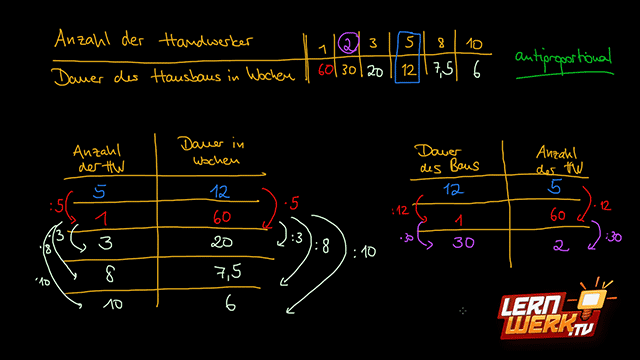 Anzahl der Handwerker 1 2 3 5 8 10
Dauer des Hausbaus in Wochen 60 30 20 12 7,5 6
antiproportional
Anzahl der HW Dauer in Wochen
5 12
:5 1 60 ·5
·3 3 20 :3
·8 8 7,5 :8
·10 10 6 :10
Dauer des Baus Anzahl der HW
12 5
:12 1 60 ·12
·30 30 2 :30
LERN
WERK.TV